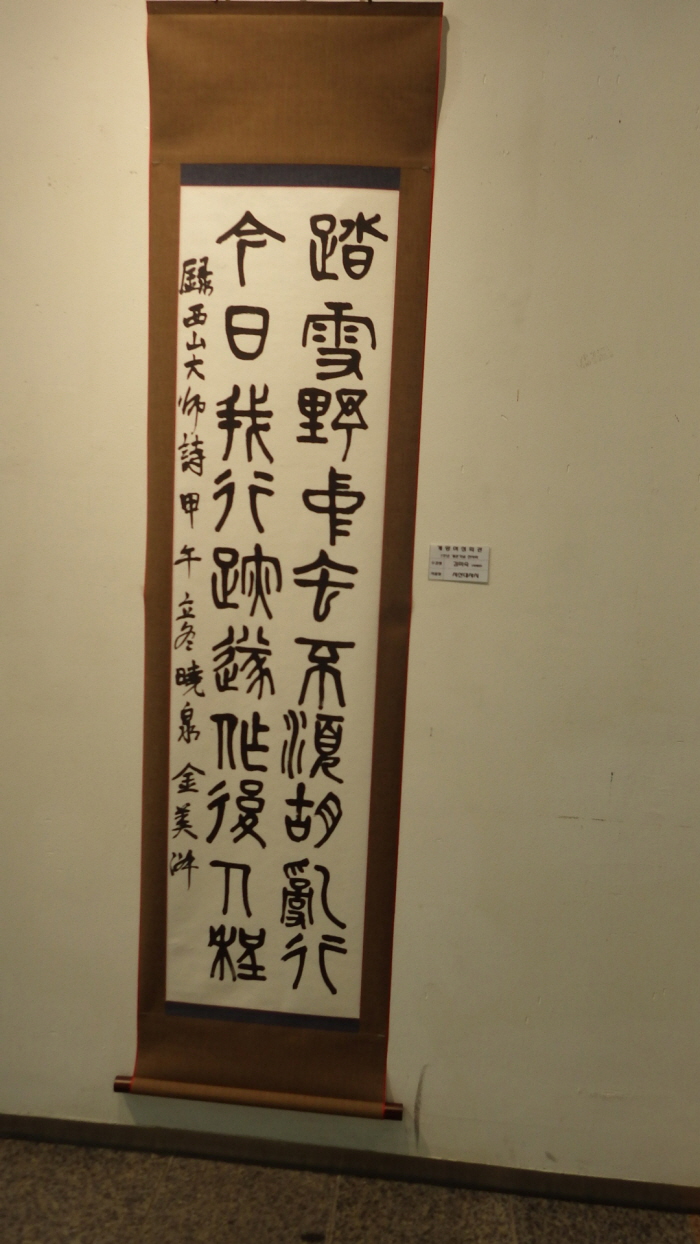 踏雪野中去不須胡亂行
今日我行跡遂作後人程
錄西山大師詩甲午立冬曉泉金美